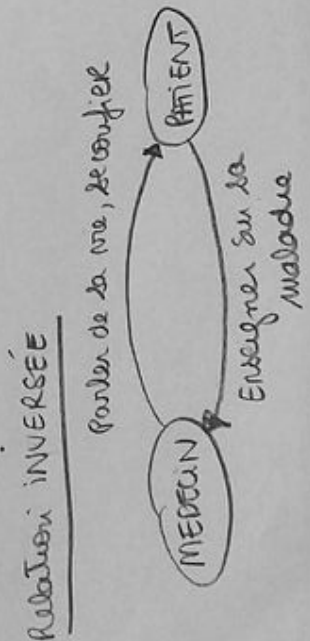 Relation INVERSÉE
Parler de sa vie, se confier
MEDECIN
PATIENT
Enseigner sur sa
maladie